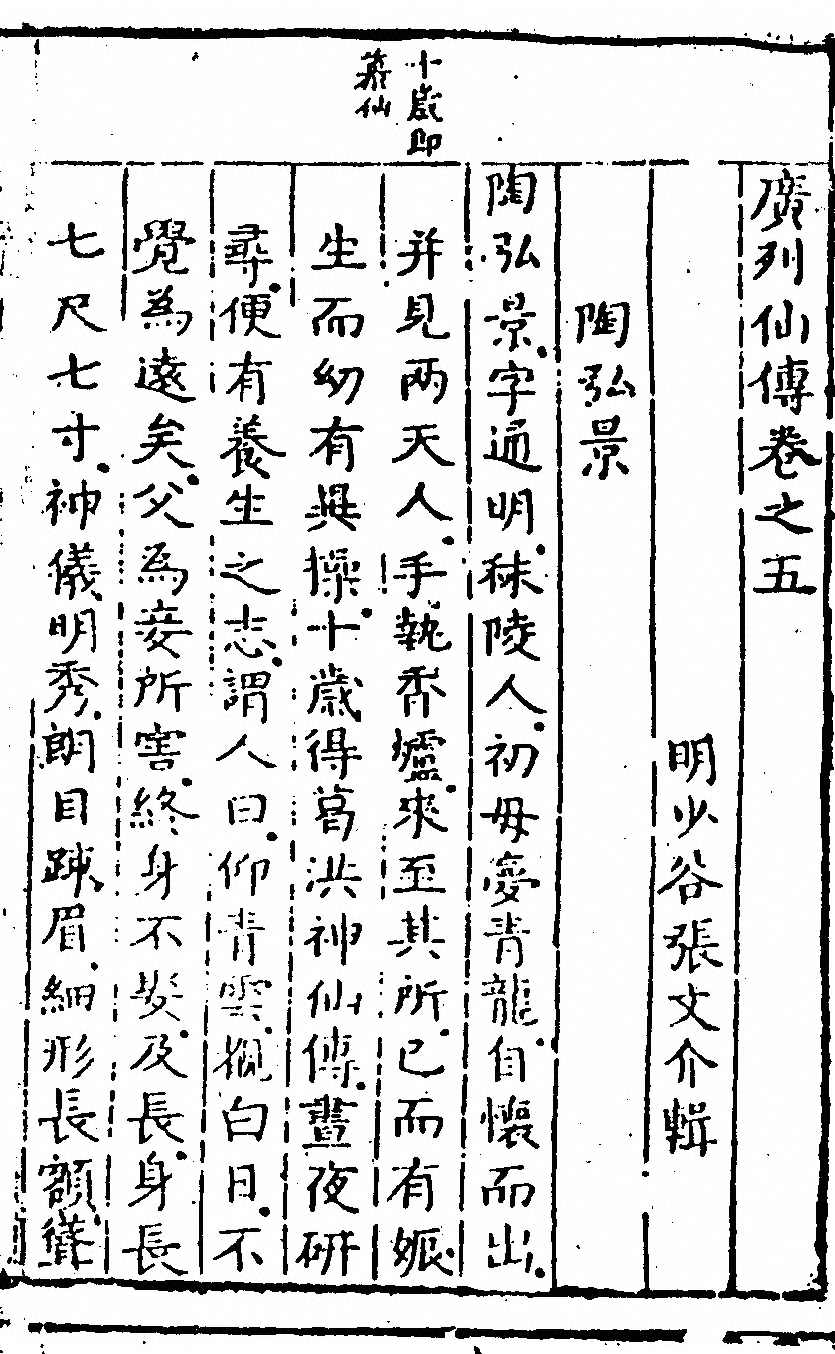 十歲即
慕仙
廣列仙傳卷之五
明少谷張文介輯
陶弘景
陶弘景字通明秣陵人初母夢青龍自懷而出
并見两天人手執香爐來至其所已而有娠
生而幼有異操十歲得葛洪神仙傳晝夜研
尋便有養生之志謂人曰仰青雲覩白日不
覺為遠矣父為妾所害終身不娶及長身長
七尺七寸神儀明秀朗目踈眉細形長額聳